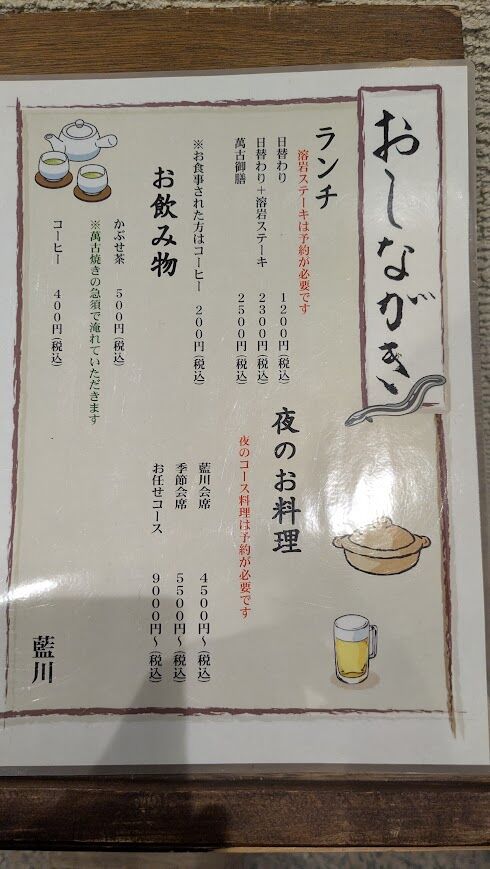 おしながき
ランチ
溶岩ステーキは予約が必要です
日替わり 1200円(税込)
日替わり+溶岩ステーキ 2300円(税込)
萬古御膳 2500円(税込)
※お食事された方はコーヒー 200円(税込)
お飲み物
かぶせ茶 500円(税込)
※萬古焼きの急須で淹れていただきます
コーヒー 400円(税込)
夜のお料理
夜のコース料理は予約が必要です
藍川会席 4500円~(税込)
季節会席 5500円~(税込)
お任せコース 9000円~(税込)
藍川